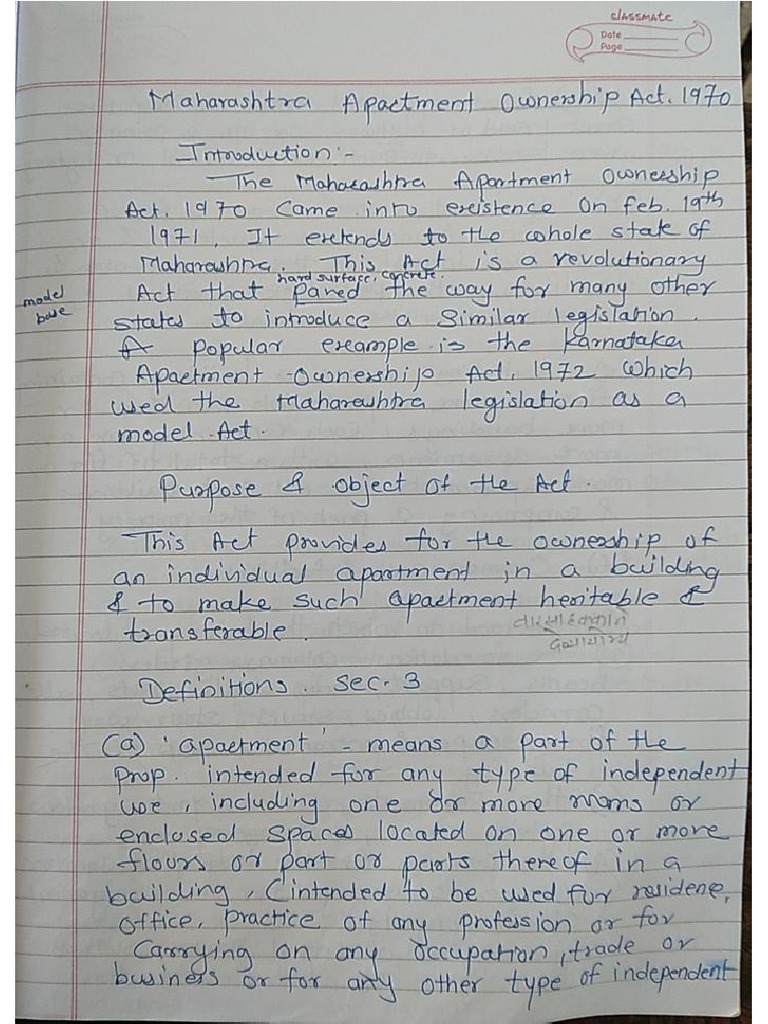 classmate
Date
Page
Maharashtra Apartment Ownership Act. 1970
Introduction :-
The Maharashtra Apartment Ownership
Act. 1970 Came into existence on Feb. 19th
1971. It extends to the whole state of
Maharashtra. This Act is a revolutionary
hard surface, concrete.
model
base
Act that paved the way for many other
states to introduce a similar legislation.
A popular example is the Karnataka
Apartment Ownership Act, 1972 which
used the Maharashtra legislation as a
model Act.
Purpose & object of the Act.
This Act provides for the ownership of
an individual apartment in a building
& to make such apartment heritable &
transferable.
वारसाहक्काने
Definitions. Sec. 3
(a) 'apartment' - means a part of the
prop. intended for any type of independent
use, including one or more rooms or
enclosed spaces located on one or more
floors or part or parts thereof in a
building, (intended to be used for residence,
office, practice of any profession or for
Carrying on any occupation, trade or
business or for any other type of independent